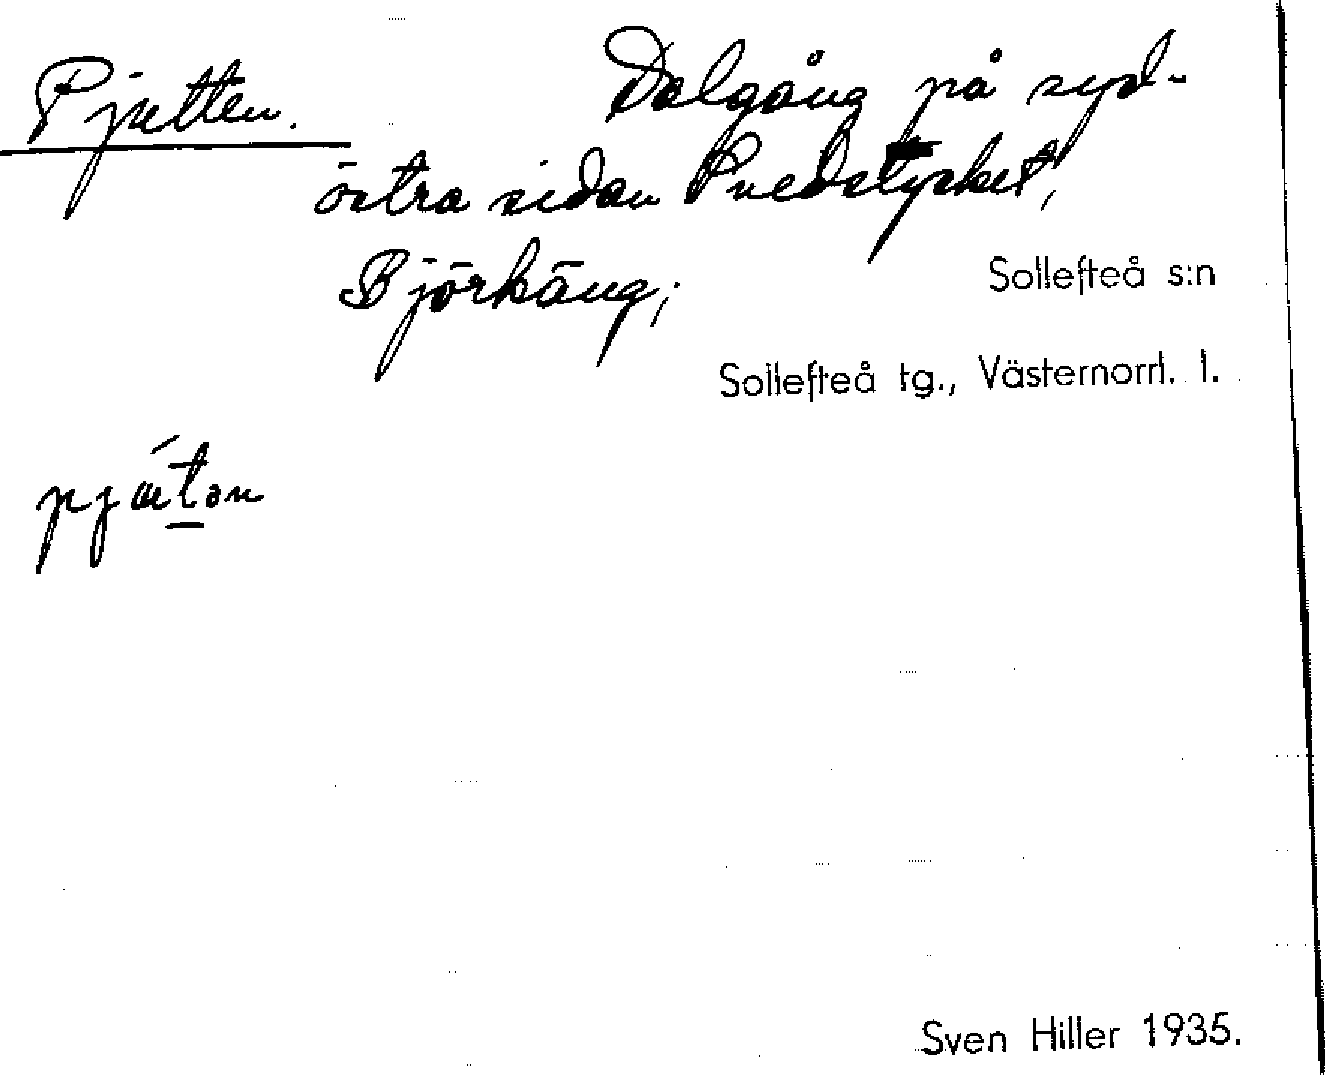 Pjätten. Dalgång på syd-
östra sidan Predstycket,
Björkäng;
Sollefteå s:n
Sollefteå tg., Västernorrl. l.
pjǽtən
Sven Hiller 1935.